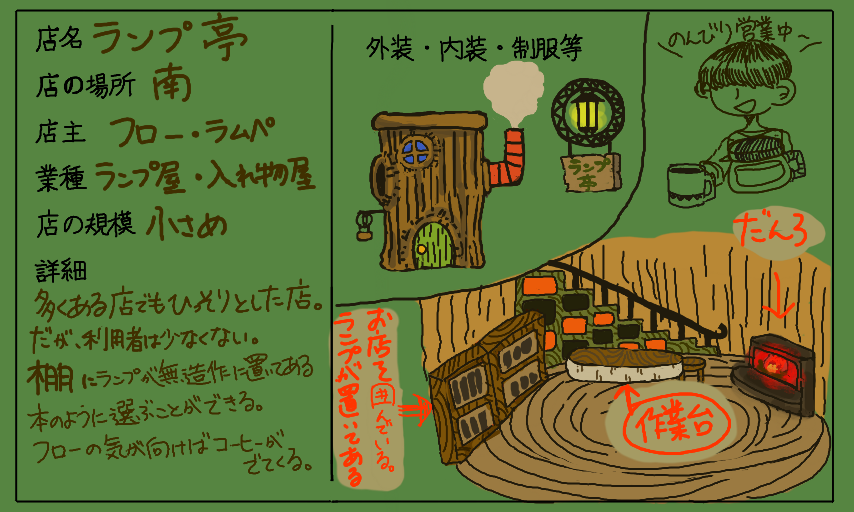 店名 ランプ亭
店の場所 南
店主 フロー・ラムペ
業種 ランプ屋・入れ物屋
店の規模 小さめ
詳細
多くある店でもひっそりとした店。
だが、利用者は少なくない。
棚にランプが無造作に置いてある
本のように選ぶことができる。
フローの気が向けばコーヒーが
でてくる。
外装・内装・制服等
ランプ
亭
のんびり営業中〜
だんろ
お店を囲んでいる。
ランプが置いてある
作業台